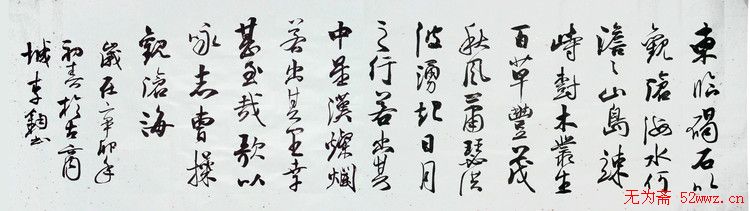 東临碣石以
觀滄海水何
澹々山島竦
峙樹木叢生
百草豐茂
秋風蕭瑟洪
波湧起日月
之行若出其
中星漢燦爛
若出其里幸
甚至哉歌以
咏志曹操
觀滄海
歲在辛卯年
初春於古商
城李書
无为斋 52wwz.cn